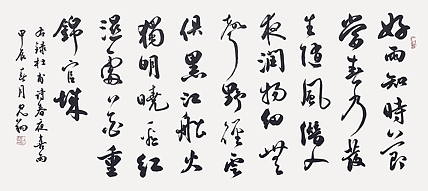 好雨知時節
當春乃發
生隨風潛入
夜潤物細無
聲野徑雲
俱黑江船火
獨明曉看紅
濕處花重
錦官城
右錄杜甫詩春夜喜雨
甲辰春月